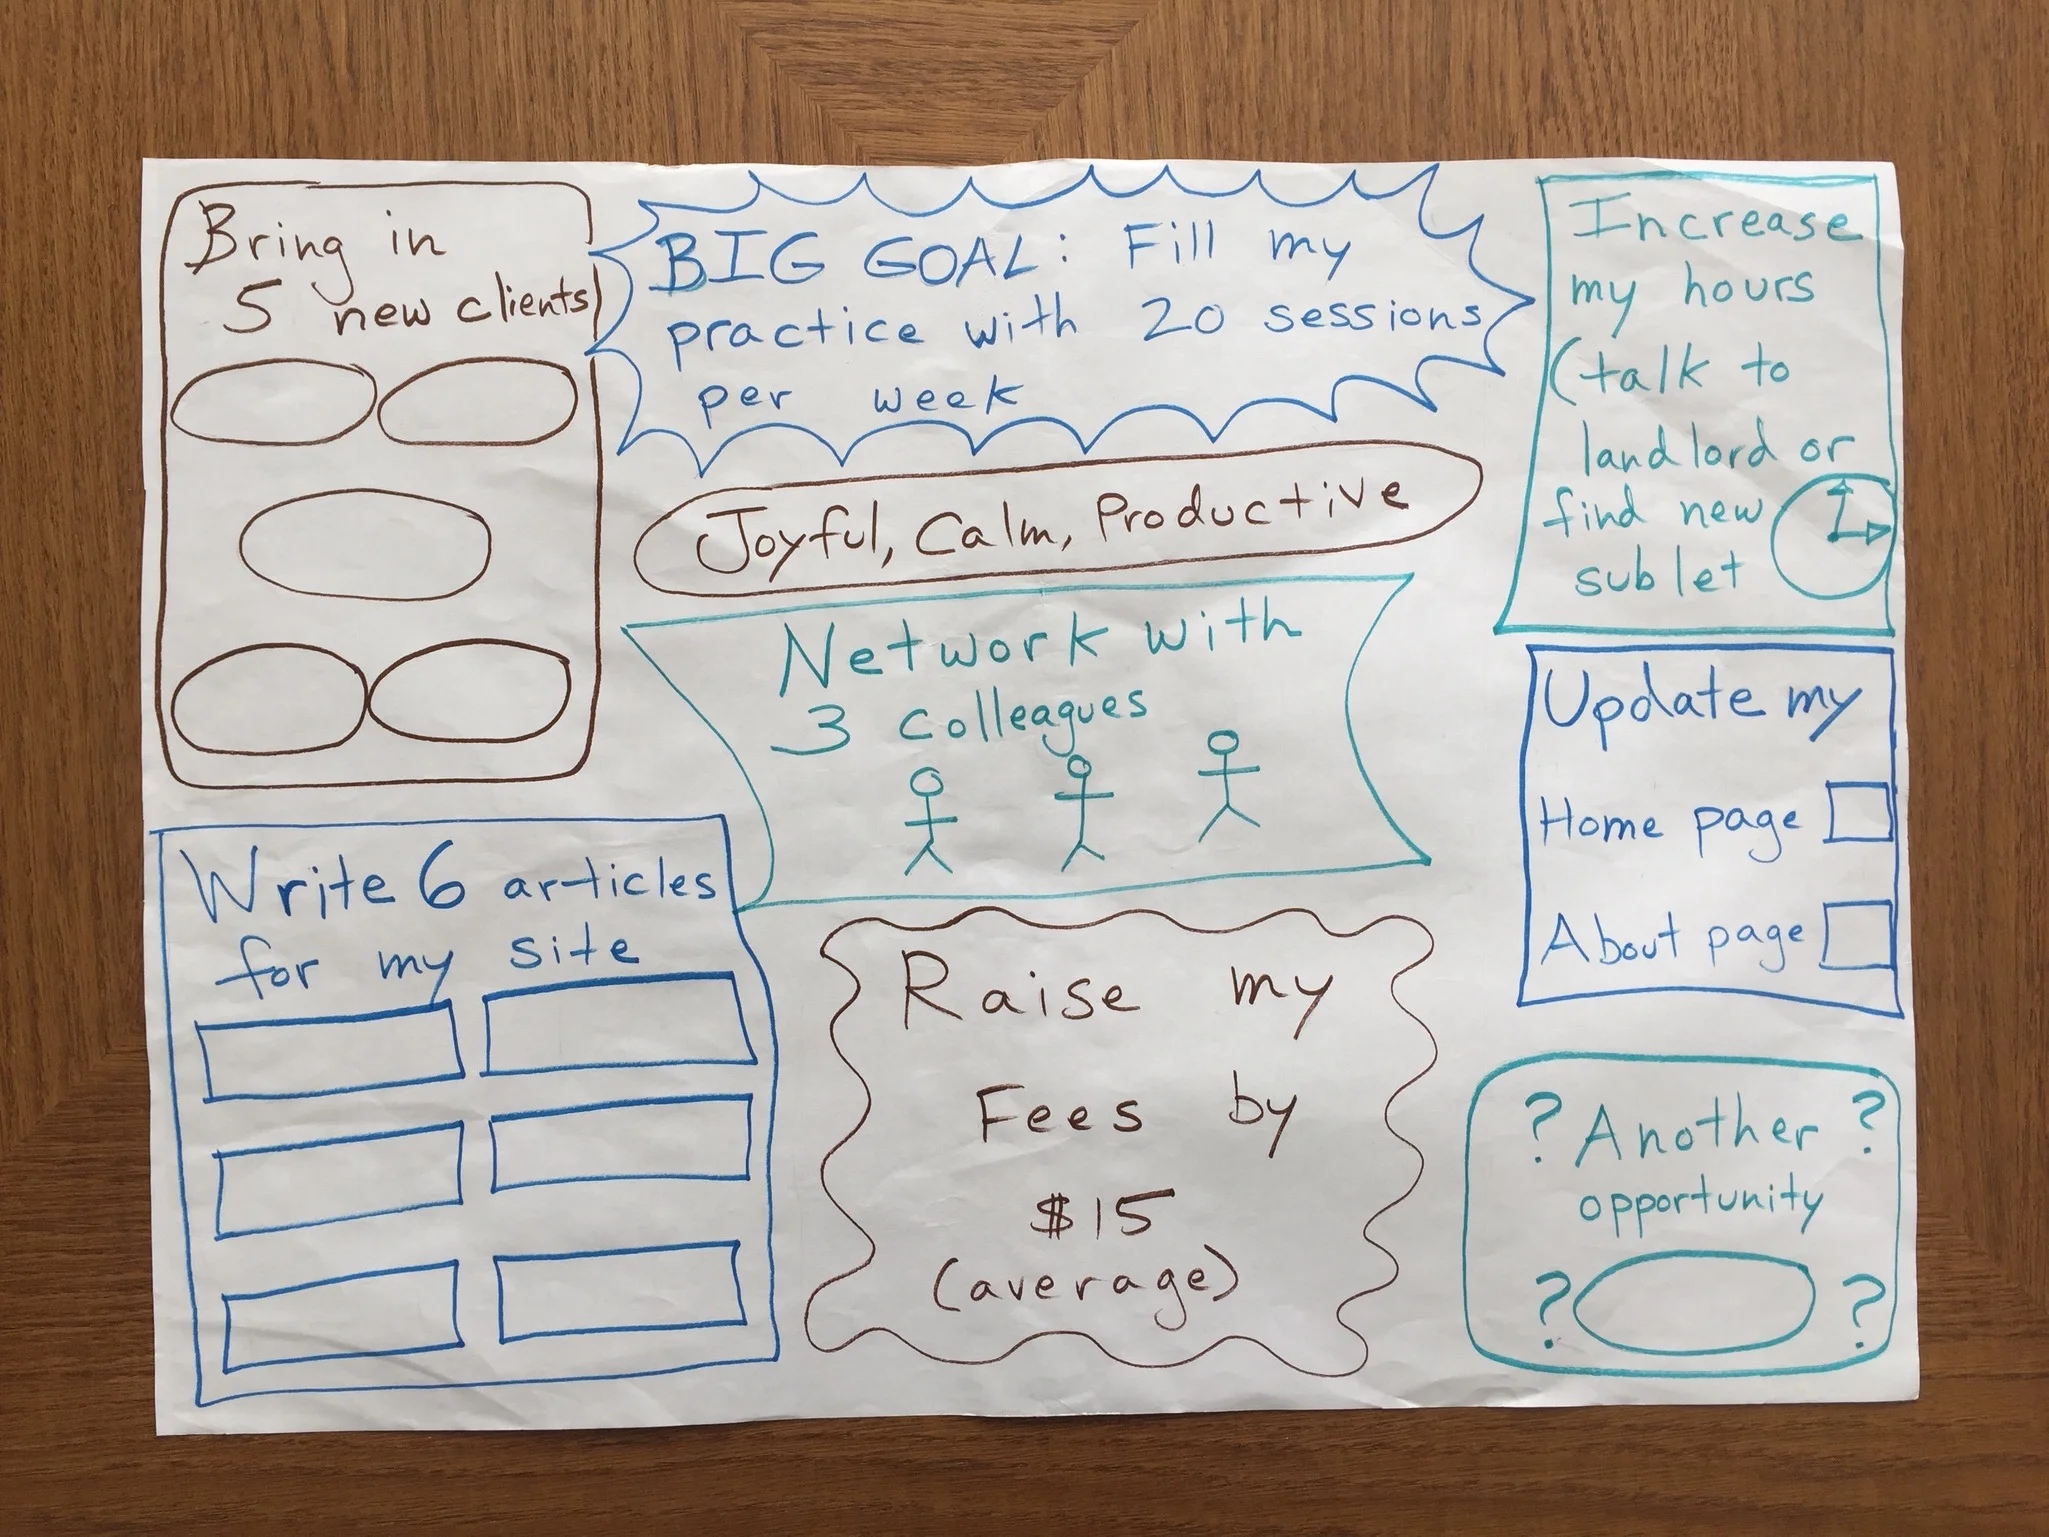 Bring in
5 new clients
BIG GOAL: Fill my
practice with 20 sessions
per week
Increase
my hours
(talk to
landlord or
find new
sublet
Joyful, Calm, Productive
Network with
3 colleagues
Update my
Home page
About page
Write 6 articles
for my site
Raise my
Fees by
$15
(average)
? Another ?
opportunity
? ?